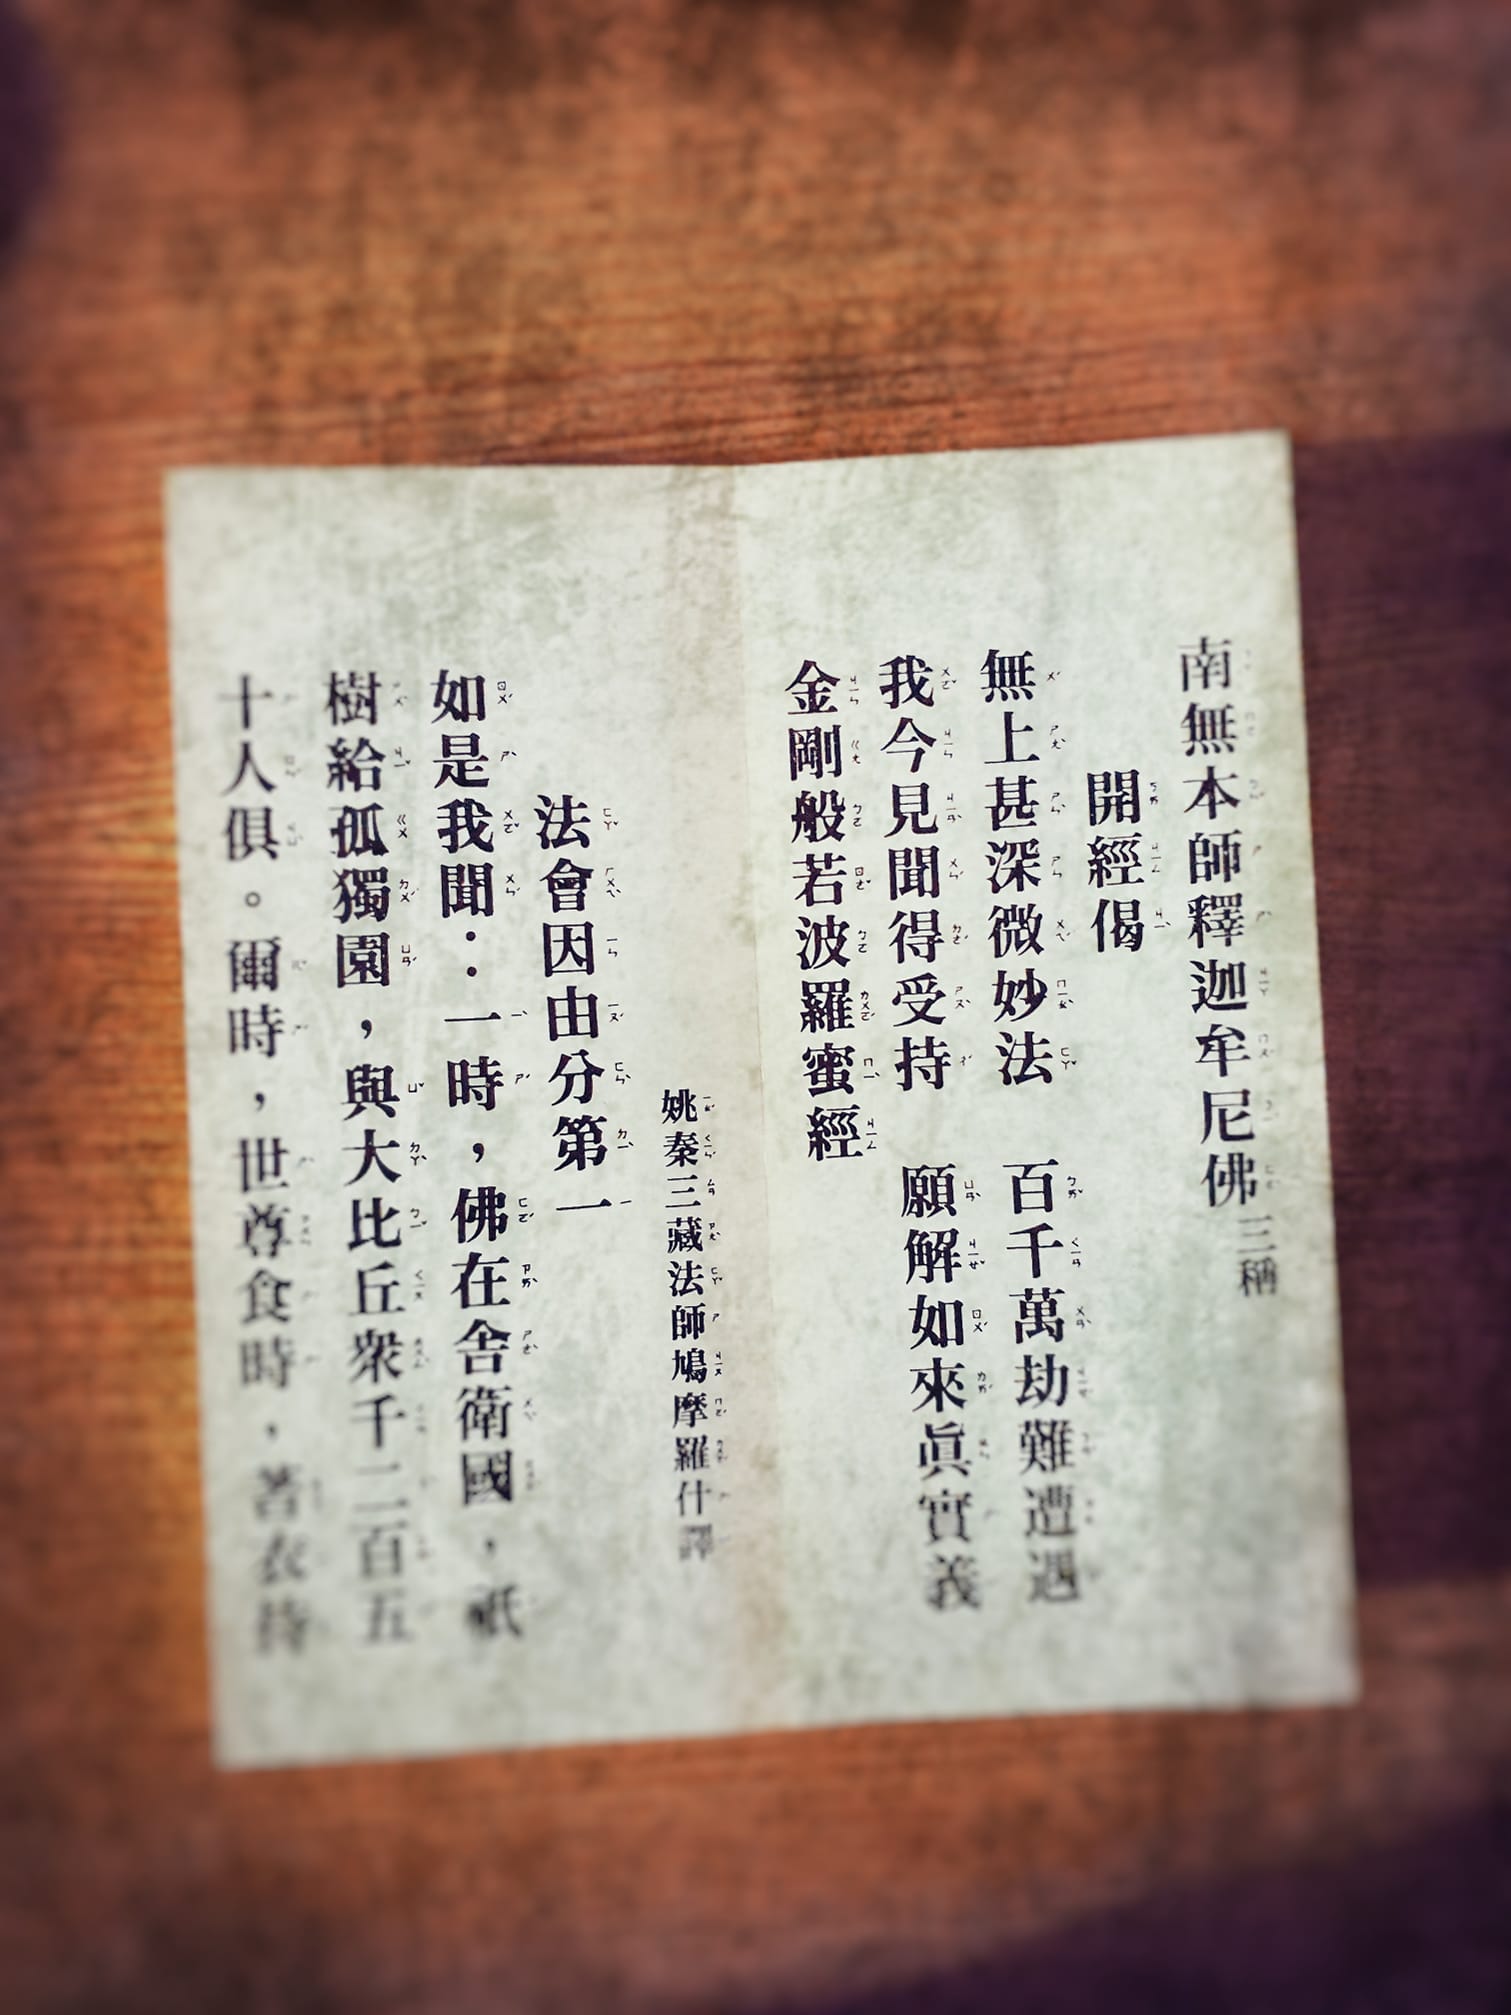 南無本師釋迦牟尼佛三稱
開經偈
無上甚深微妙法　百千萬劫難遭遇
我今見聞得受持　願解如來眞實義
金剛般若波羅蜜經
姚秦三藏法師鳩摩羅什譯
法會因由分第一
如是我聞：一時，佛在舍衛國，祇
樹給孤獨園，與大比丘衆千二百五
十人俱。爾時，世尊食時，著衣持